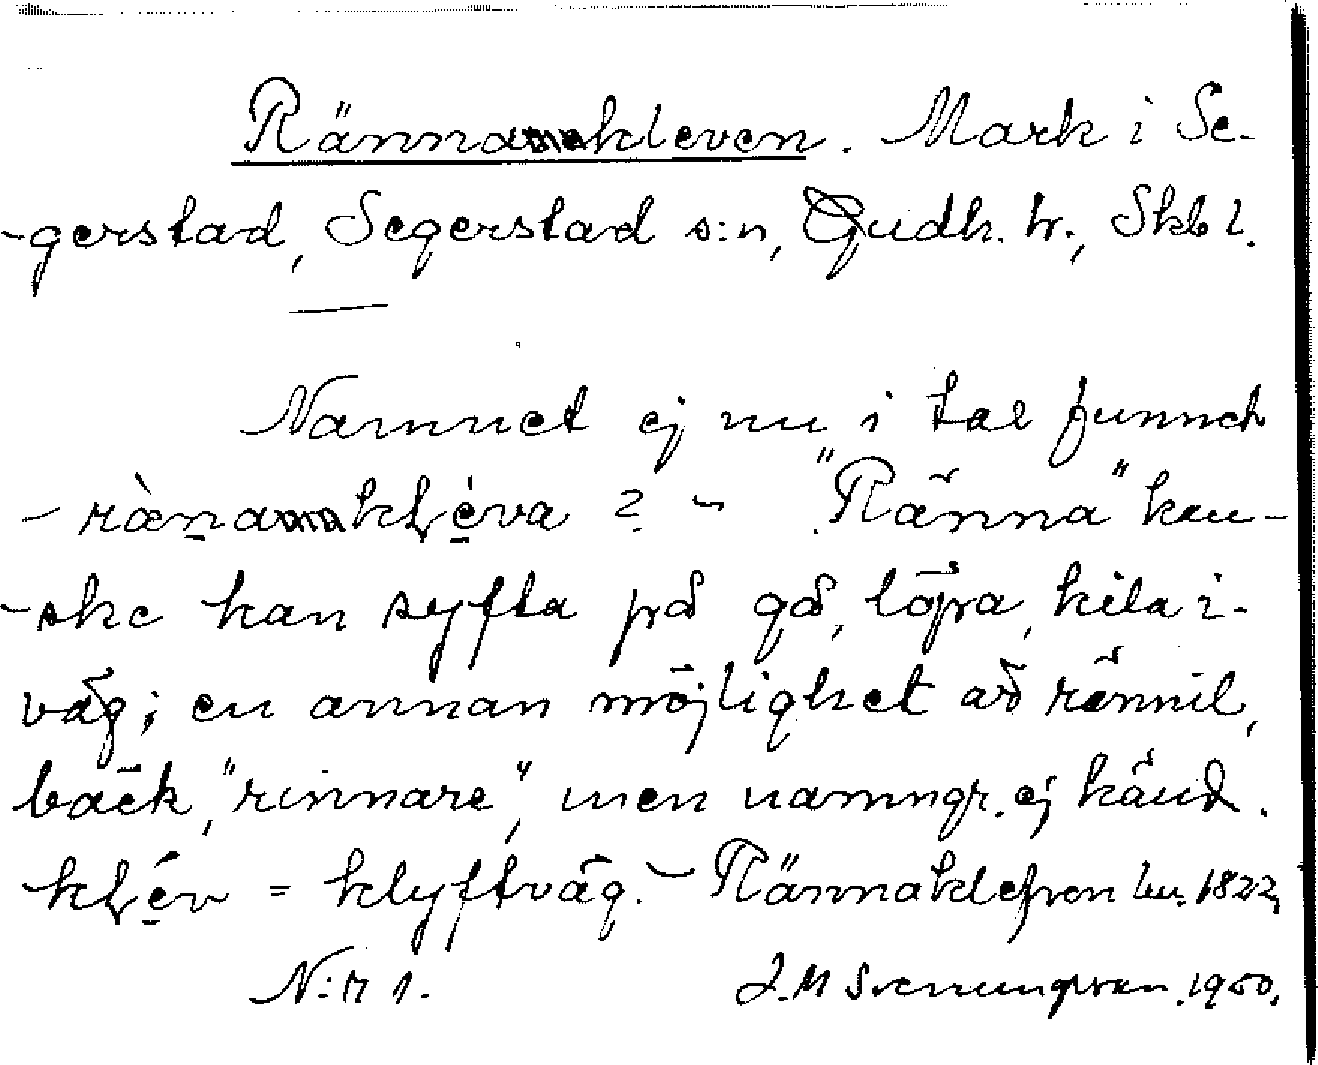 Rännakleven. Mark i Se-
-gerstad, Segerstad s:n, Gudh. hr., Skbl.
Namnet ej nu i tal funnet
- rænakléva ? - "Ränna" kan-
-ske kan syfta på gå, löpa, kila i-
väg; en annan möjlighet är rännil,
bäck, "rinnare", men namngr. ej känd.
klév = klyftväg. - Rännaklefven Lm. 1822,
N:r 1. J. M Svenungsson. 1950.